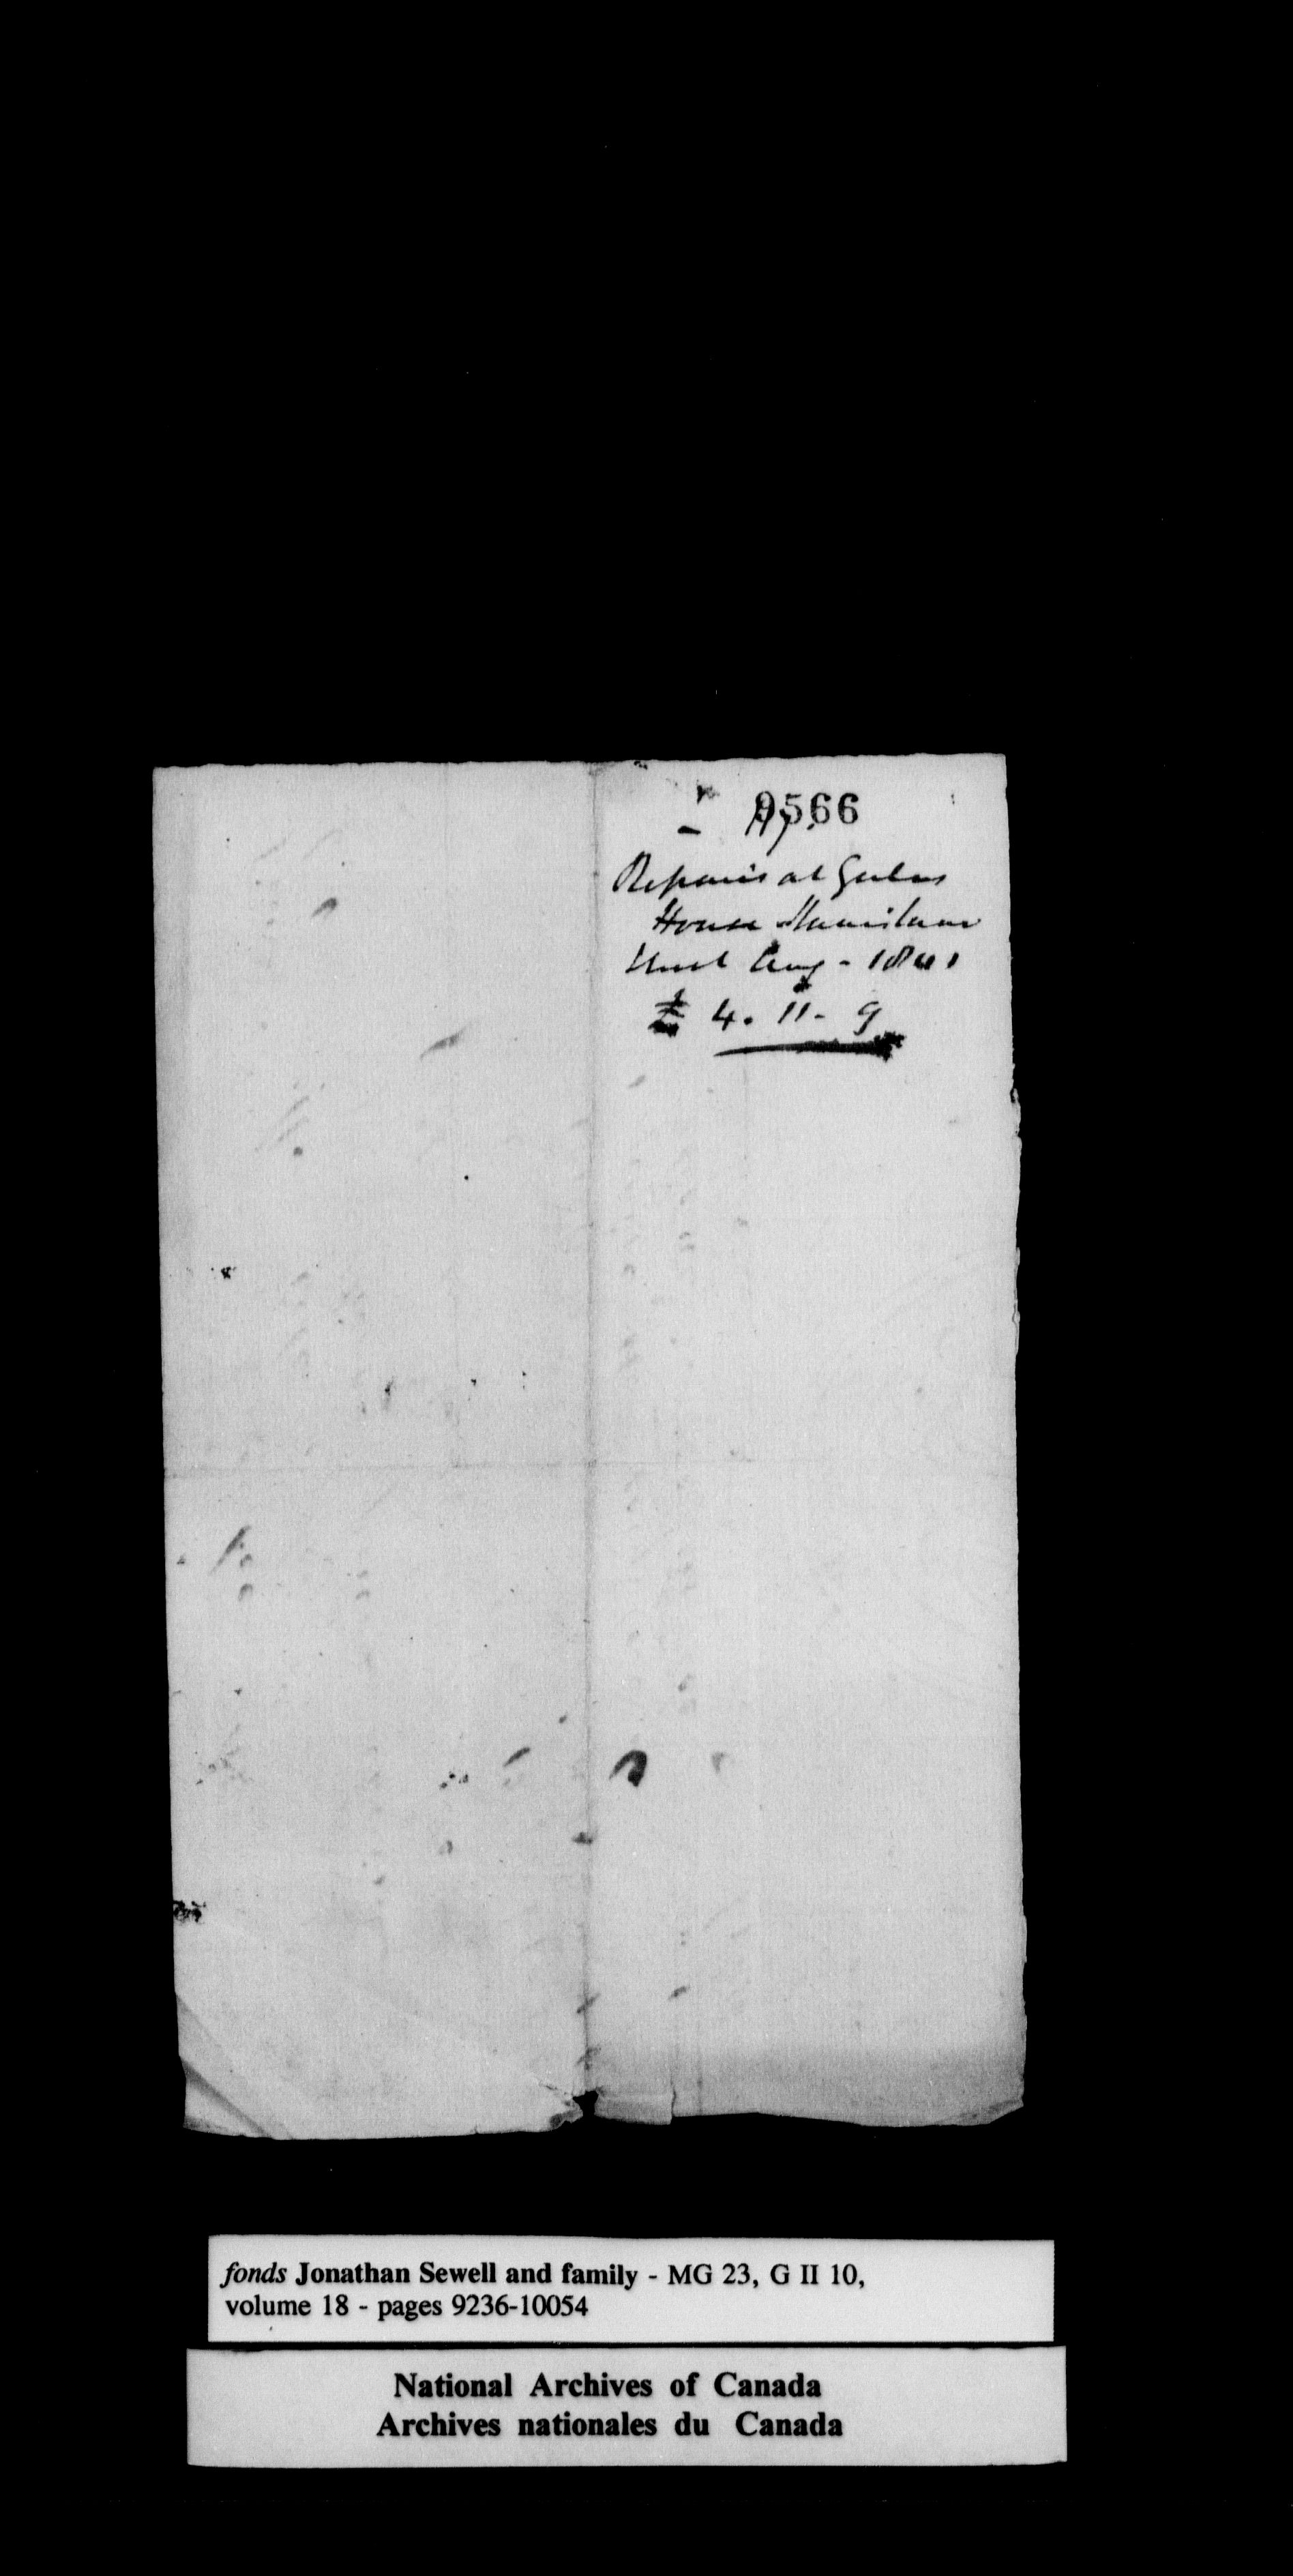 9566
Repairs at
House
Street Aug - 1841
£ 4. 11. 9
fonds Jonathan Sewell and family - MG 23, G II 10,
volume 18 - pages 9236-10054
National Archives of Canada
Archives nationales du Canada